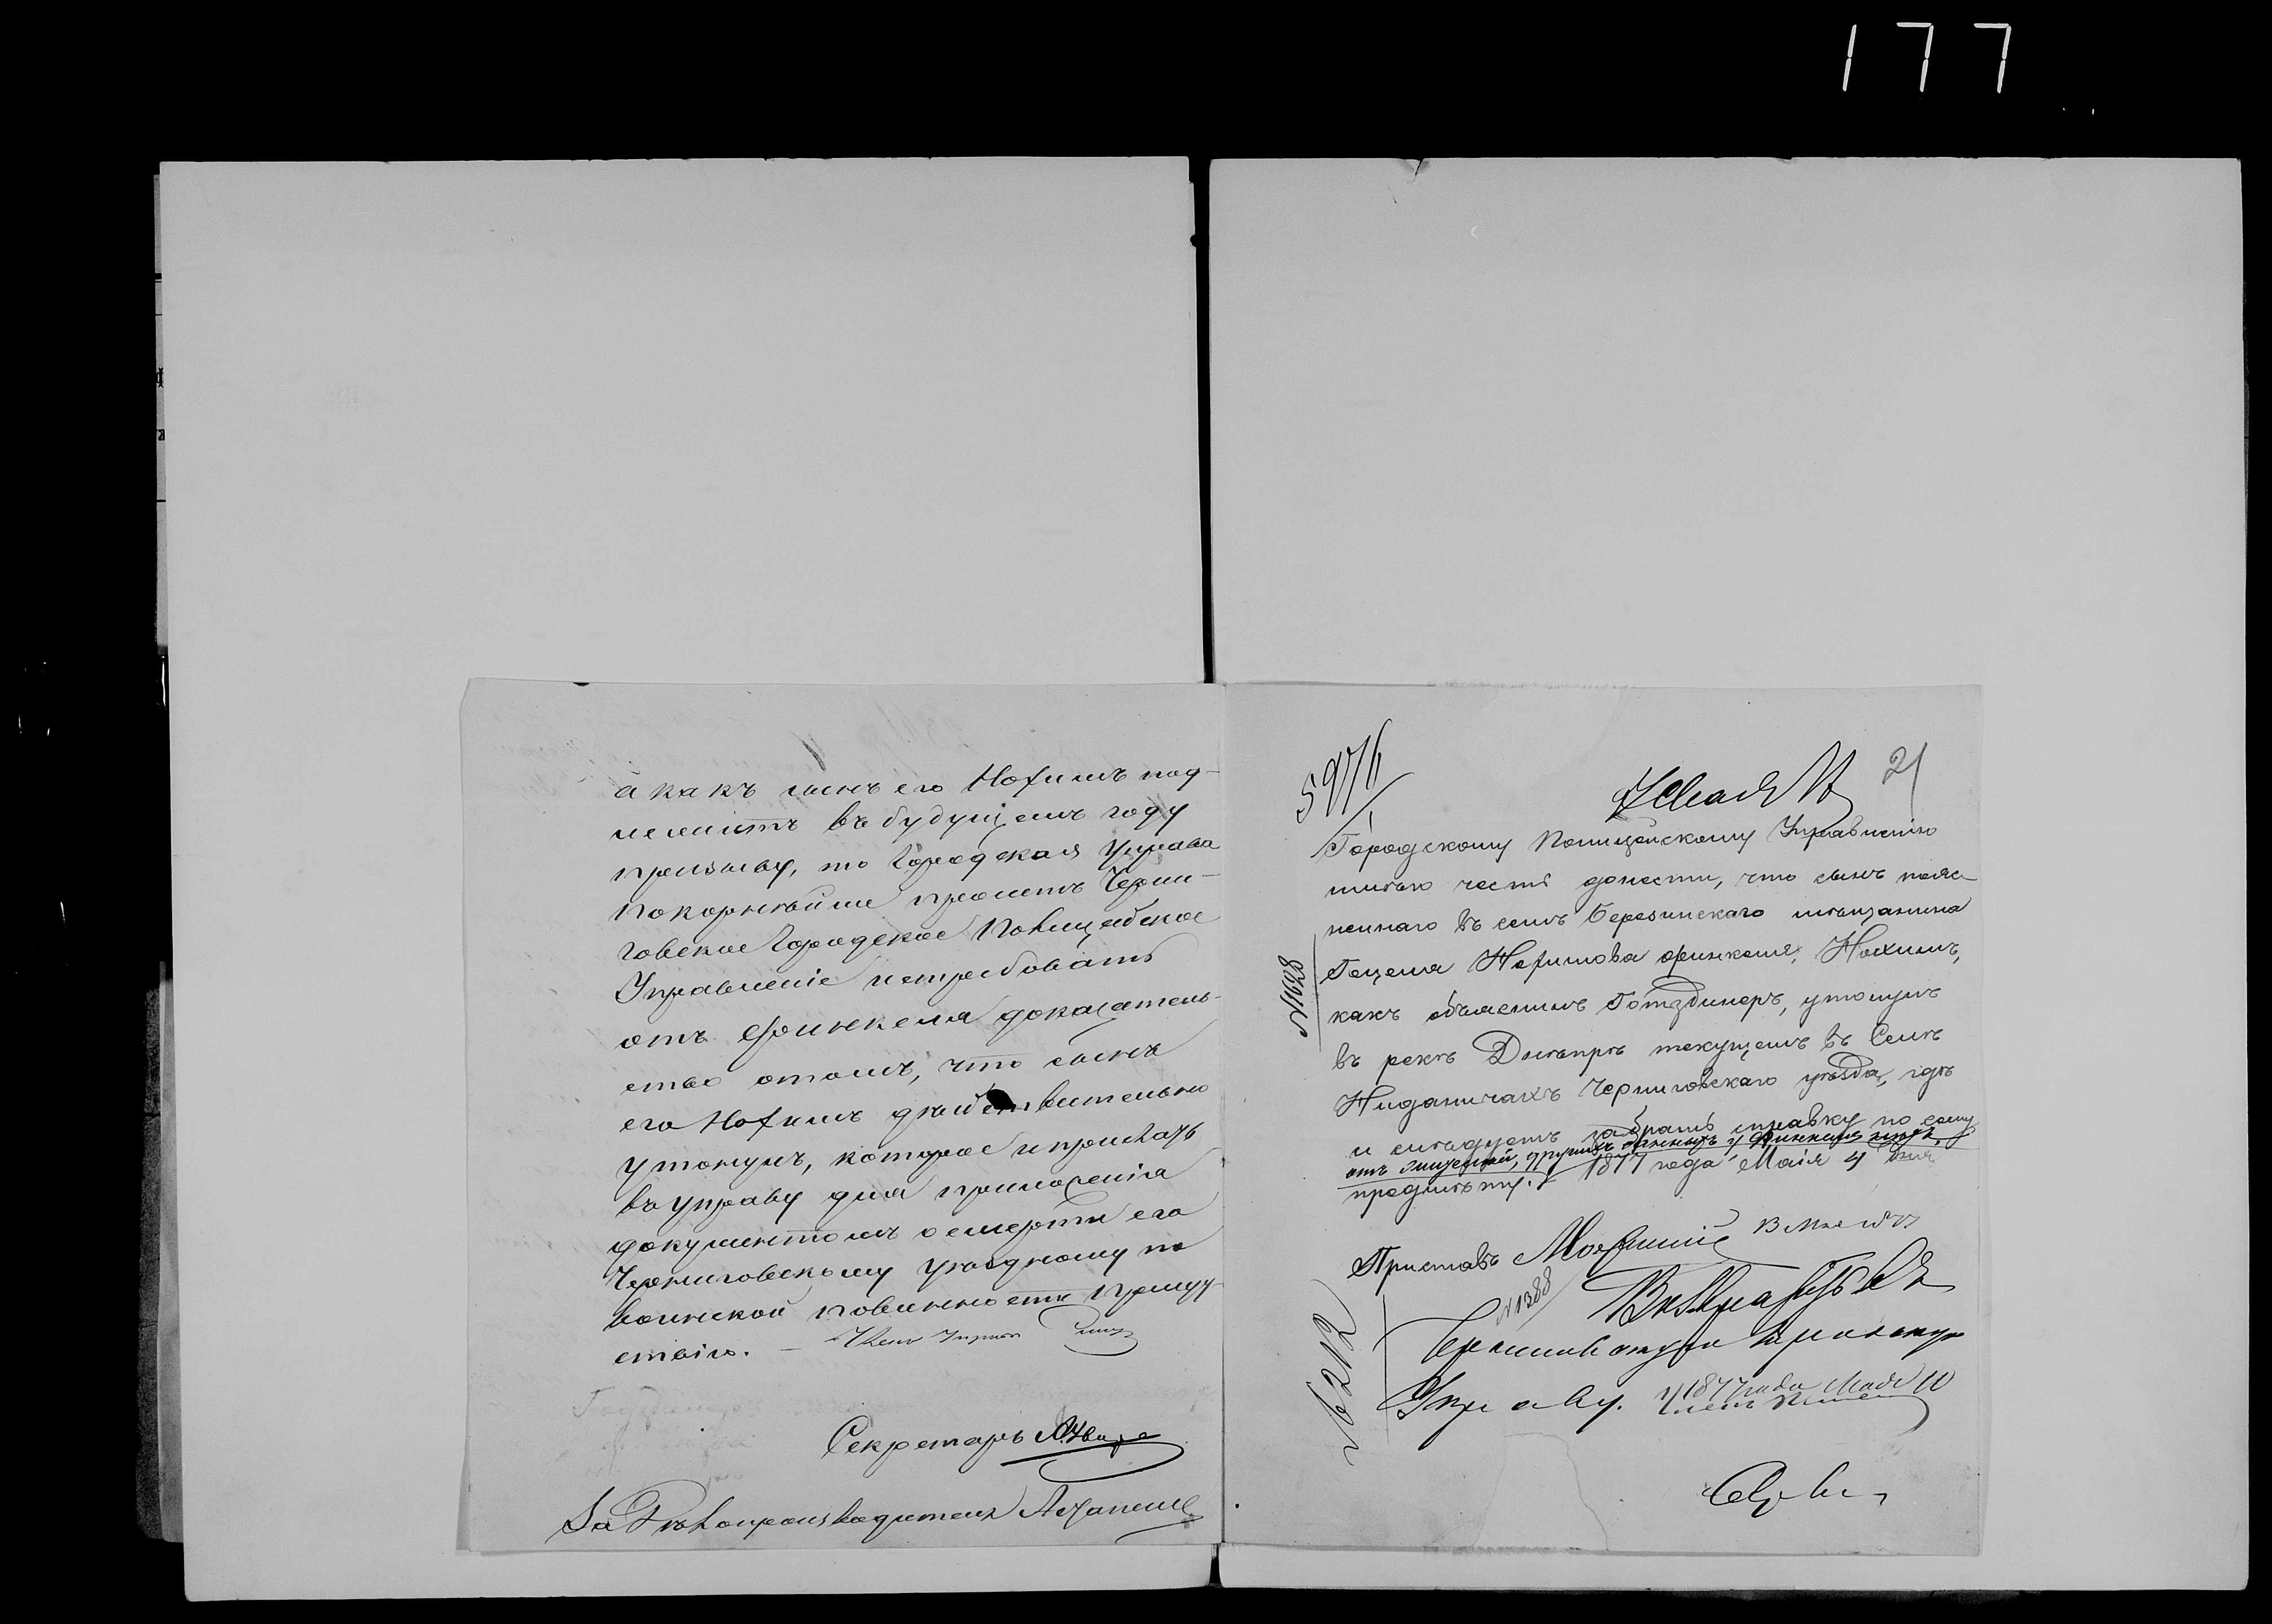 177
а какъ сынъ его Нохимъ под-
лежитъ въ будущемъ году
призыву, то Городская Управа
покорнѣйше проситъ Черни-
говское Городское Полицейское
Управленіе истребовать
отъ Финкеля доказатель-
ство отомъ, что сынъ
его Нохимъ дѣйствительно
утонулъ, которое и прислать
въ управу для приложенія
документомъ о смерти его
Черниговскому уѣздному по
воинской повинности присут-
ствію. — Членъ Управы
Секретарь
За Дѣлопроизводителя
5976
21
Городскому Полицейскому Управленію
имѣю честь донести, что сынъ пояс-
неннаго въ семъ Березинскаго мѣщанина
Гецеля Нохимова Финкеля, Нохимъ,
какъ объяснилъ Готздинеръ, утонулъ
въ рекѣ Днѣпрѣ текущемъ въ Селѣ
Ниданичахъ Черниговскаго уѣзда, гдѣ
и слѣдуетъ забрать справку по сему
отъ другихъ данныхъ у Финкеля нѣтъ.
предмѣту. 1877 года Маія 4 дня
№1628
Приставъ
№1388
Управу. 1877 года Мая 10
№6212